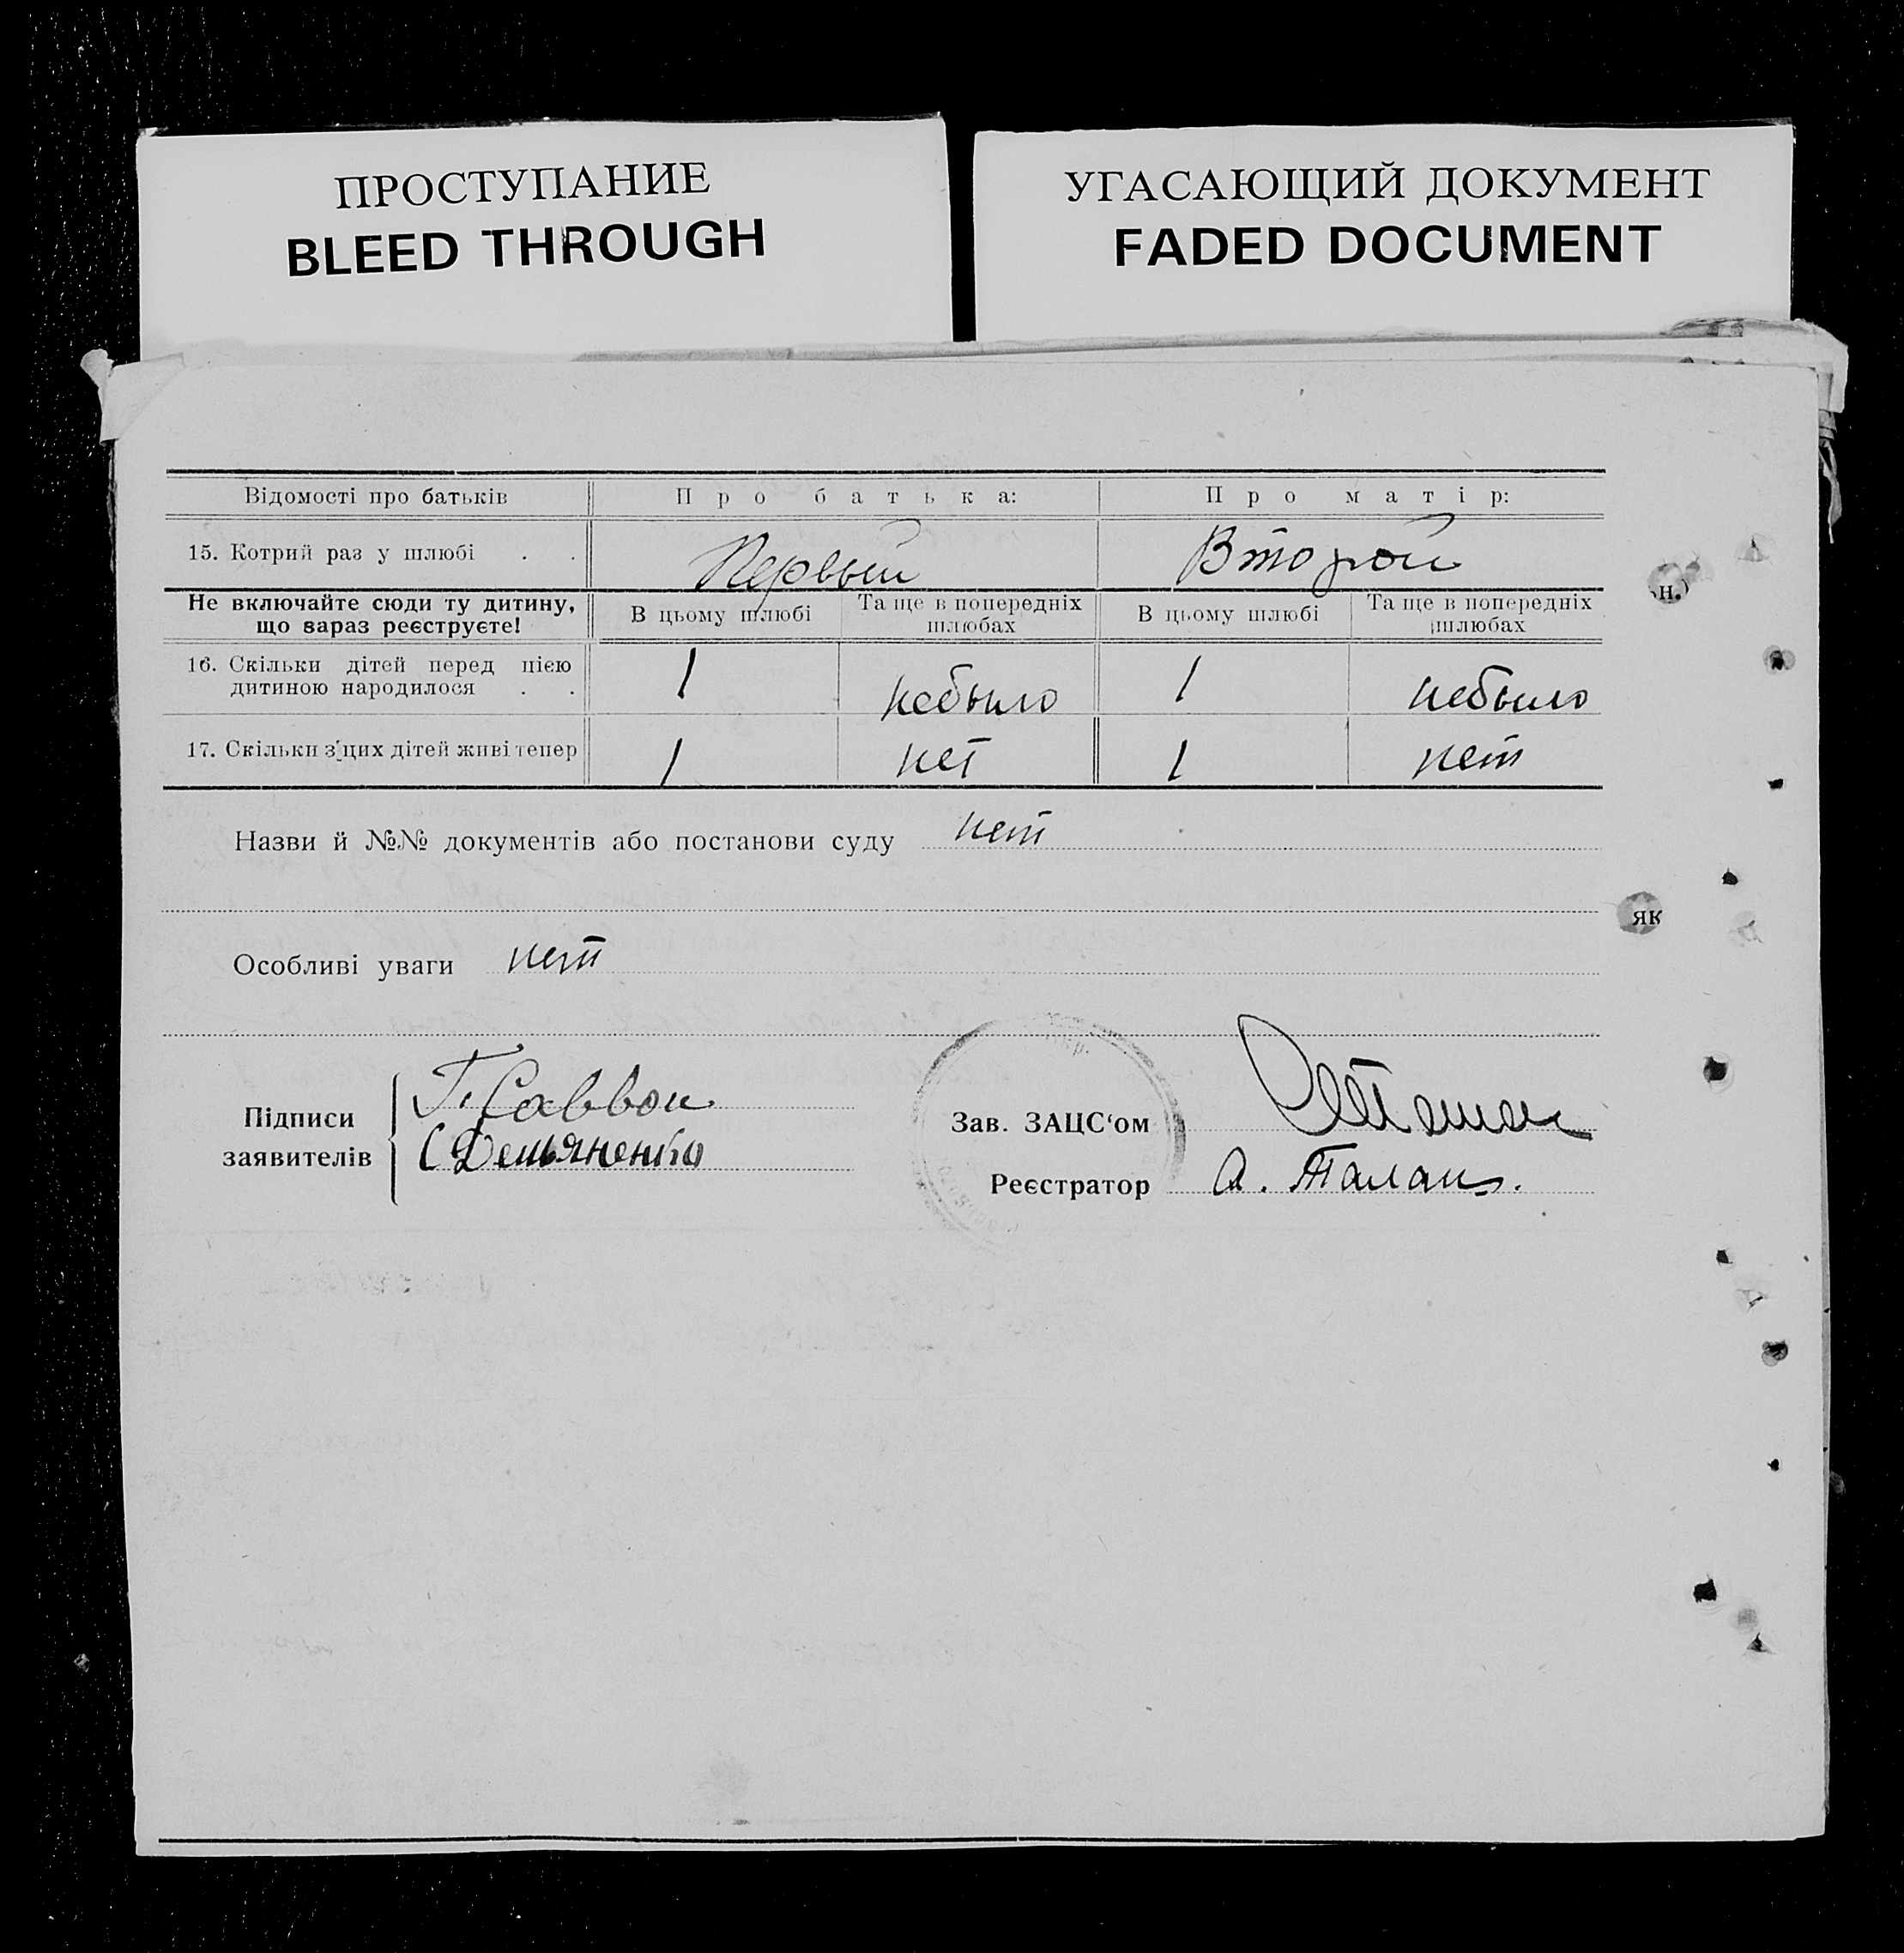 ПРОСТУПАНИЕ
BLEED THROUGH
УГАСАЮЩИЙ ДОКУМЕНТ
FADED DOCUMENT
Відомості про батьків Про батька: Про матір:
15. Котрий раз у шлюбі . . Первый Второй
Не включайте сюди ту дитину, що зараз реєструєте! В цьому шлюбі Та ще в попередніх шлюбах В цьому шлюбі Та ще в попередніх шлюбах
16. Скільки дітей перед цією дитиною народилося . . 1 небыло 1 небыло
17. Скільки з цих дітей живі тепер 1 нет 1 нет
Назви й №№ документів або постанови суду нет
Особливі уваги нет
Підписи заявителів
Т. Саввон
Демьяненко
Зав. ЗАЦС‘ом
Реєстратор А. Талан.
н.)
як